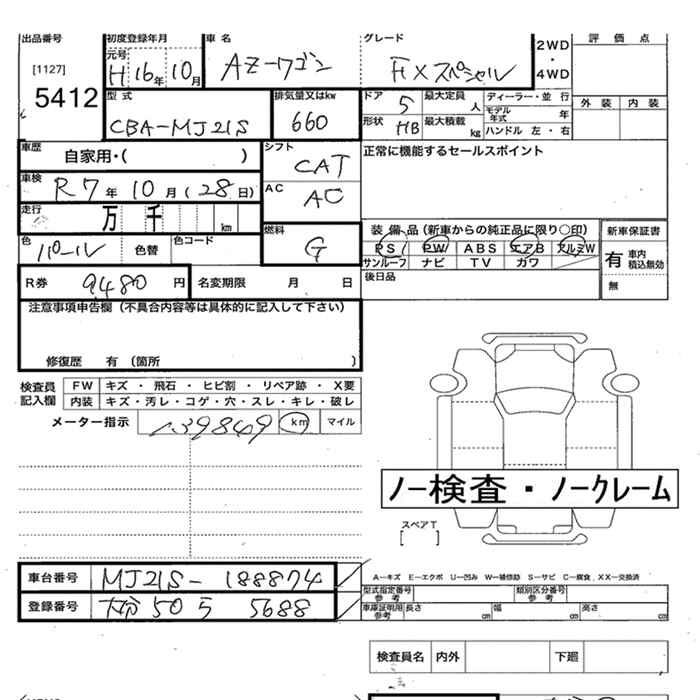 出品番号 初度登録年月 車名 グレード 評価点
[1127] 元号 H 16年 10月 AZ-ワゴン FXスペシャル 2WD・4WD
5412 外装 内装
型式 排気量又はkw ドア 5 最大定員 人 ディーラー・並行
CBA-MJ21S 660 モデル年式 年
形状 HB 最大積載 kg ハンドル 左・右
車歴 自家用・( ) シフト CAT 正常に機能するセールスポイント
車検 R7年 10月 (28日) AC AC
走行 万 千 km 装備品 (新車からの純正品に限り○印) 新車保証書
色 パール 色替 色コード 燃料 G PS PW ABS エアB アルミW 有 車内積込無効
サンルーフ ナビ TV カワ
R券 9,480円 名変期限 月 日 後日品 無
注意事項申告欄 (不具合内容等は具体的に記入して下さい)
修復歴 有 (箇所 )
検査員記入欄 FW キズ ・ 飛石 ・ ヒビ割 ・ リペア跡 ・ X要
内装 キズ・汚レ・コゲ・穴・スレ・キレ・破レ
メーター指示 139849 km マイル
ノー検査・ノークレーム
スペアT
[ ]
車台番号 MJ21S-188874 A-キズ E-エクボ U-凹み W-補修跡 S-サビ C-腐食、XX-交換済
型式指定番号 参考 類別区分番号 参考
登録番号 大分 50 ら 5688 車庫証明用参考 長さ cm 幅 cm 高さ cm
検査員名 内外 下廻